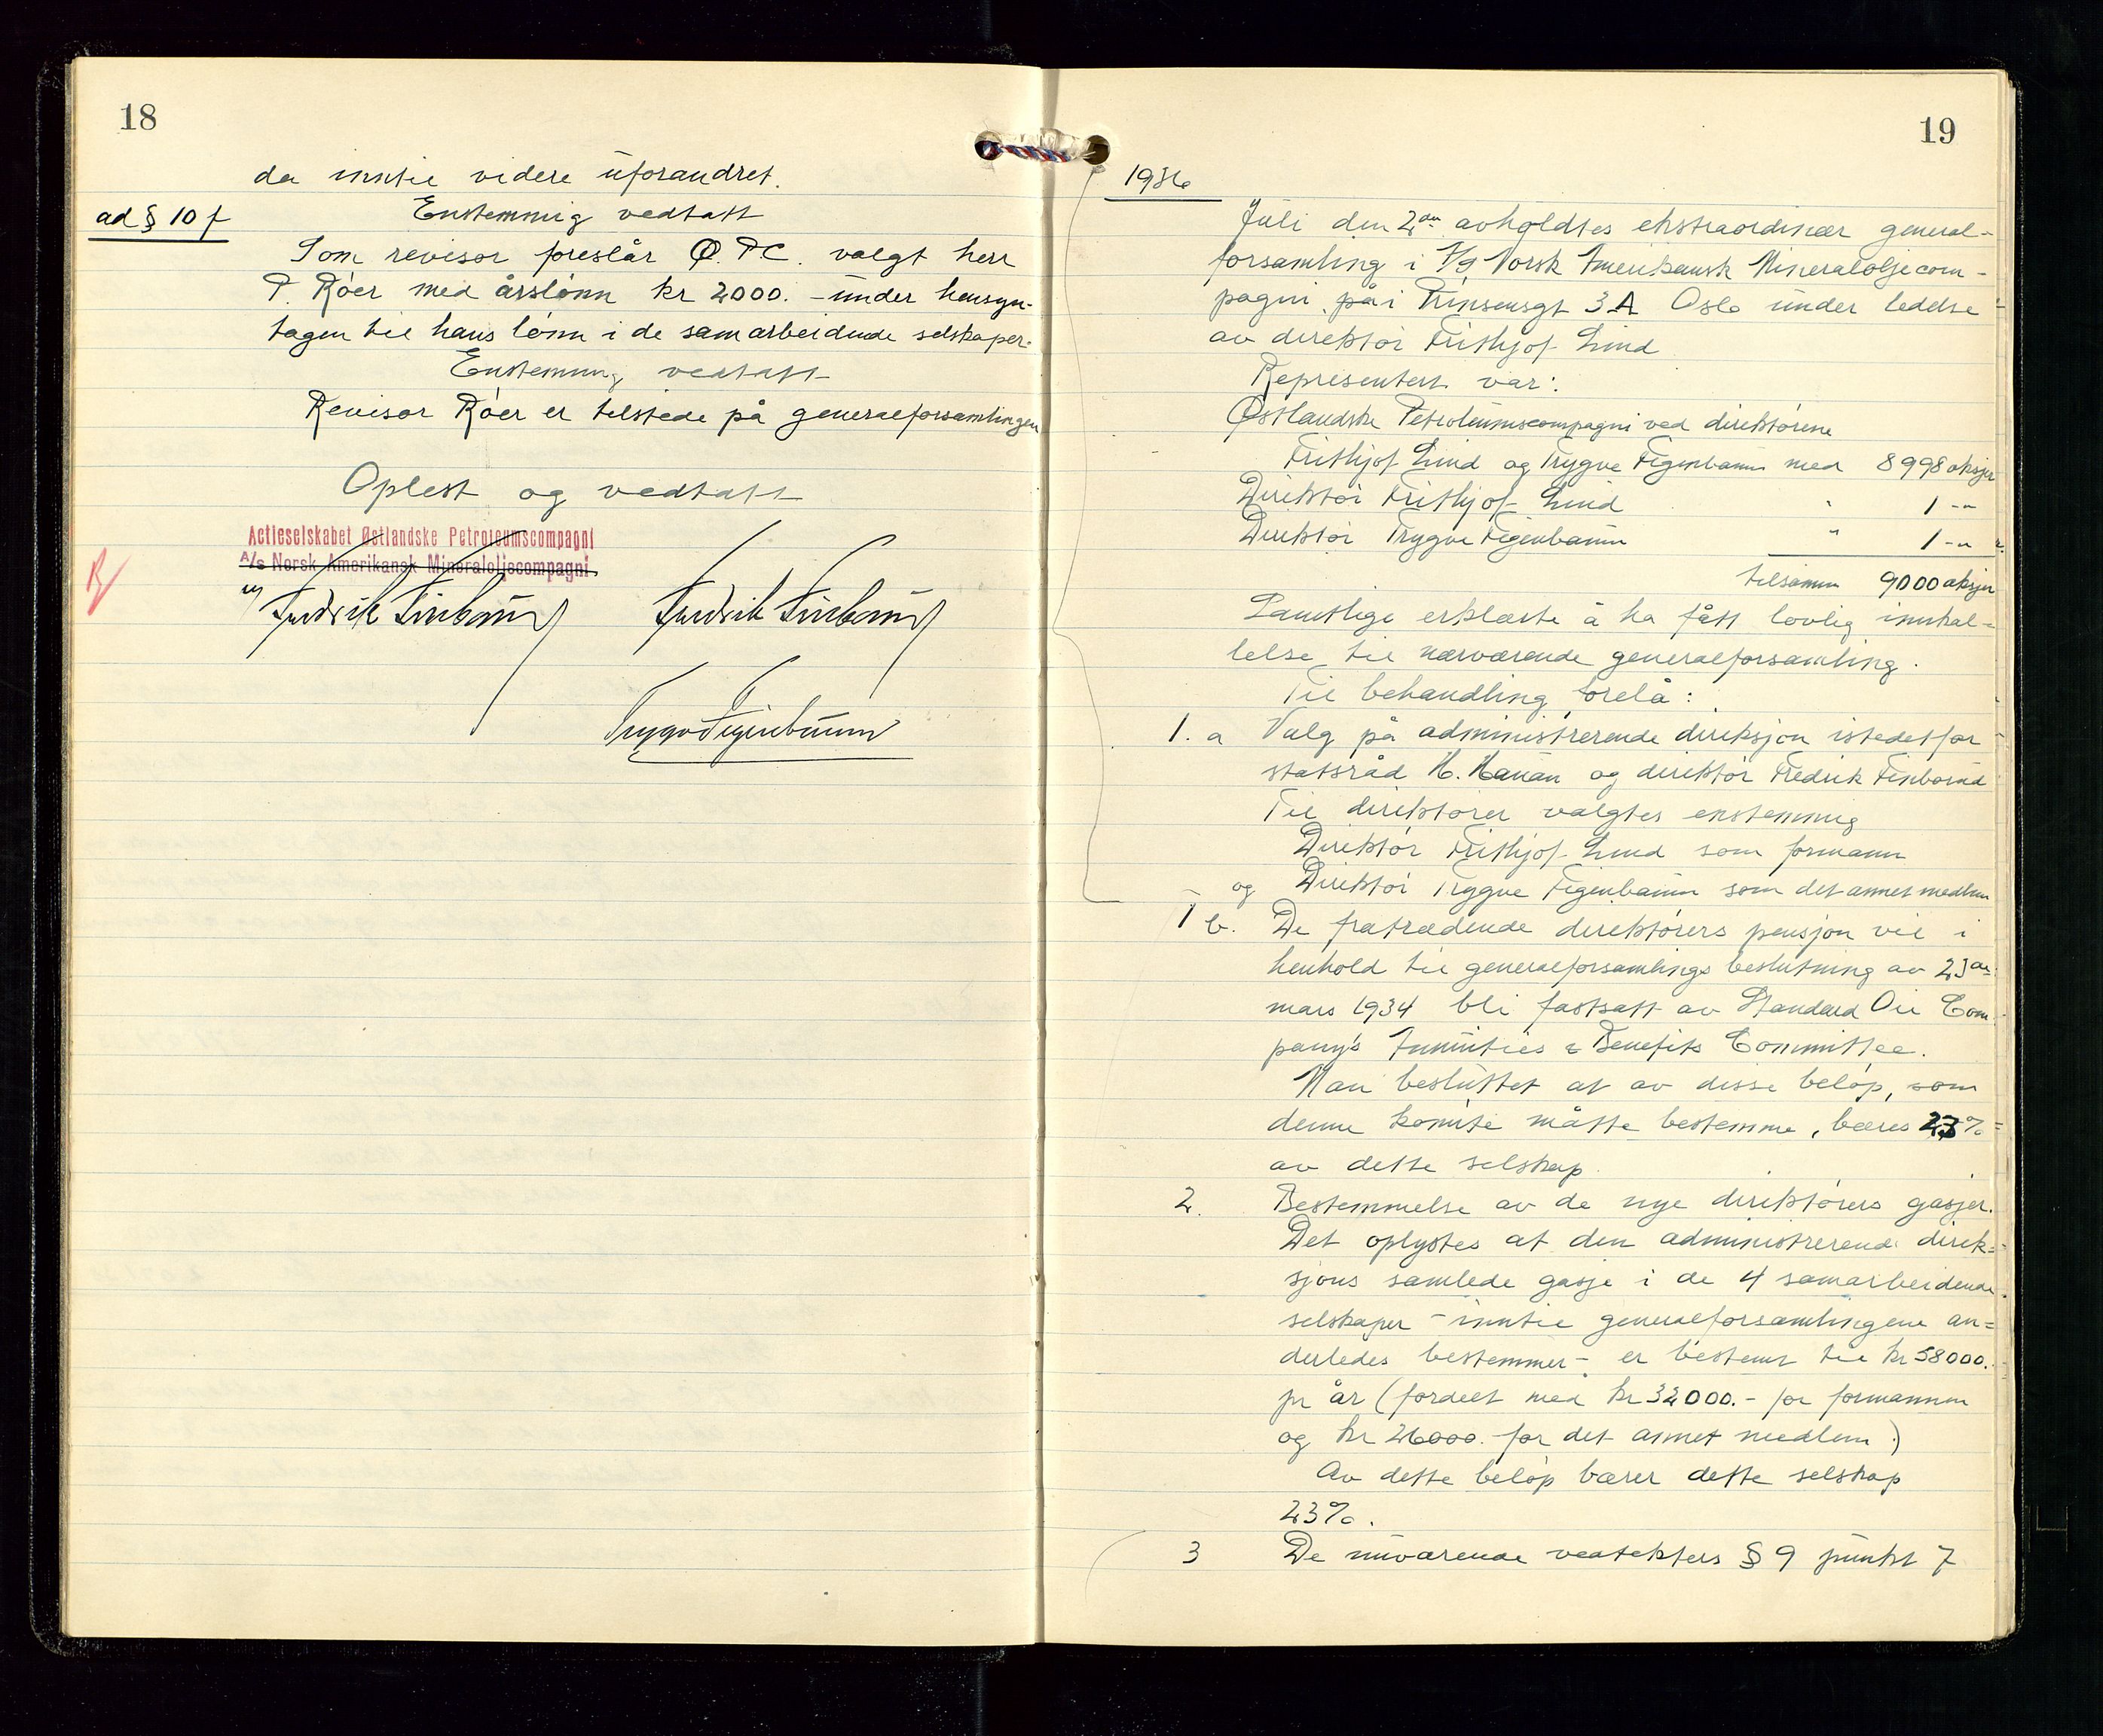 18
da inntil videre uforandret.
ad § 10 f
Enstemmig vedtatt
Som revisor foreslår Ø.P.C. valgt herr
P. Róer med årslønn kr 2000.- under hensyn-
tagen til hans lønn i de samarbeidende selskaper.
Enstemmig vedtatt
Revisor Róer er tilstede på generalforsamlingen
Oplest og vedtatt
Actieselskabet Østlandske Petroleumscompagni
A/S Norsk Amerikansk Mineraloljecompagni.
Trygve Figenbaum
19
1936
Juli den 2den avholdtes ekstraordinær general-
forsamling i A/S Norsk Amerikansk Mineraloljecom-
pagni på i Prinsensgt 3A Oslo under ledelse
av direktør Frithjof Lind
Representert var:
Østlandske Petroleumscompagni ved direktørene
Frithjof Lind og Trygve Figenbaum med 8998 aksjer
Direktør Frithjof Lind " 1 -"-
Direktør Trygve Figenbaum " 1 -"-
tilsammen 9000 aksjer
Samtlige erklærte å ha fått lovlig innkal-
lelse til nærværende generalforsamling.
Til behandling forelå:
1. a Valg på administrerende direksjon istedetfor
statsråd K. Hanan og direktør Fredrik Finborud
Til direktører valgtes enstemmig
Direktør Frithjof Lind som formann
og Direktør Trygve Figenbaum som det annet medlem
1 b. De fratrædende direktørers pensjon vil i
henhold til generalforsamlings beslutning av 23de
mars 1934 bli fastsatt av Standard Oil Com-
pany's Annuities & Benefits Committee.
Man besluttet at av disse beløp, som
denne komite måtte bestemme, bæres 23%
av dette selskap.
2. Bestemmelse av de nye direktørers gasjer.
Det oplystes at den administrerende direk-
sjons samlede gasje i de 4 samarbeidende
selskaper - inntil generalforsamlingene an-
derledes bestemmer - er bestemt til kr 58000.-
pr år (fordelt med kr 32000.- for formannen
og kr 26000.- for det annet medlem)
Av dette beløp bærer dette selskap
23%.
3 De nuværende vedtekters § 9 punkt 7